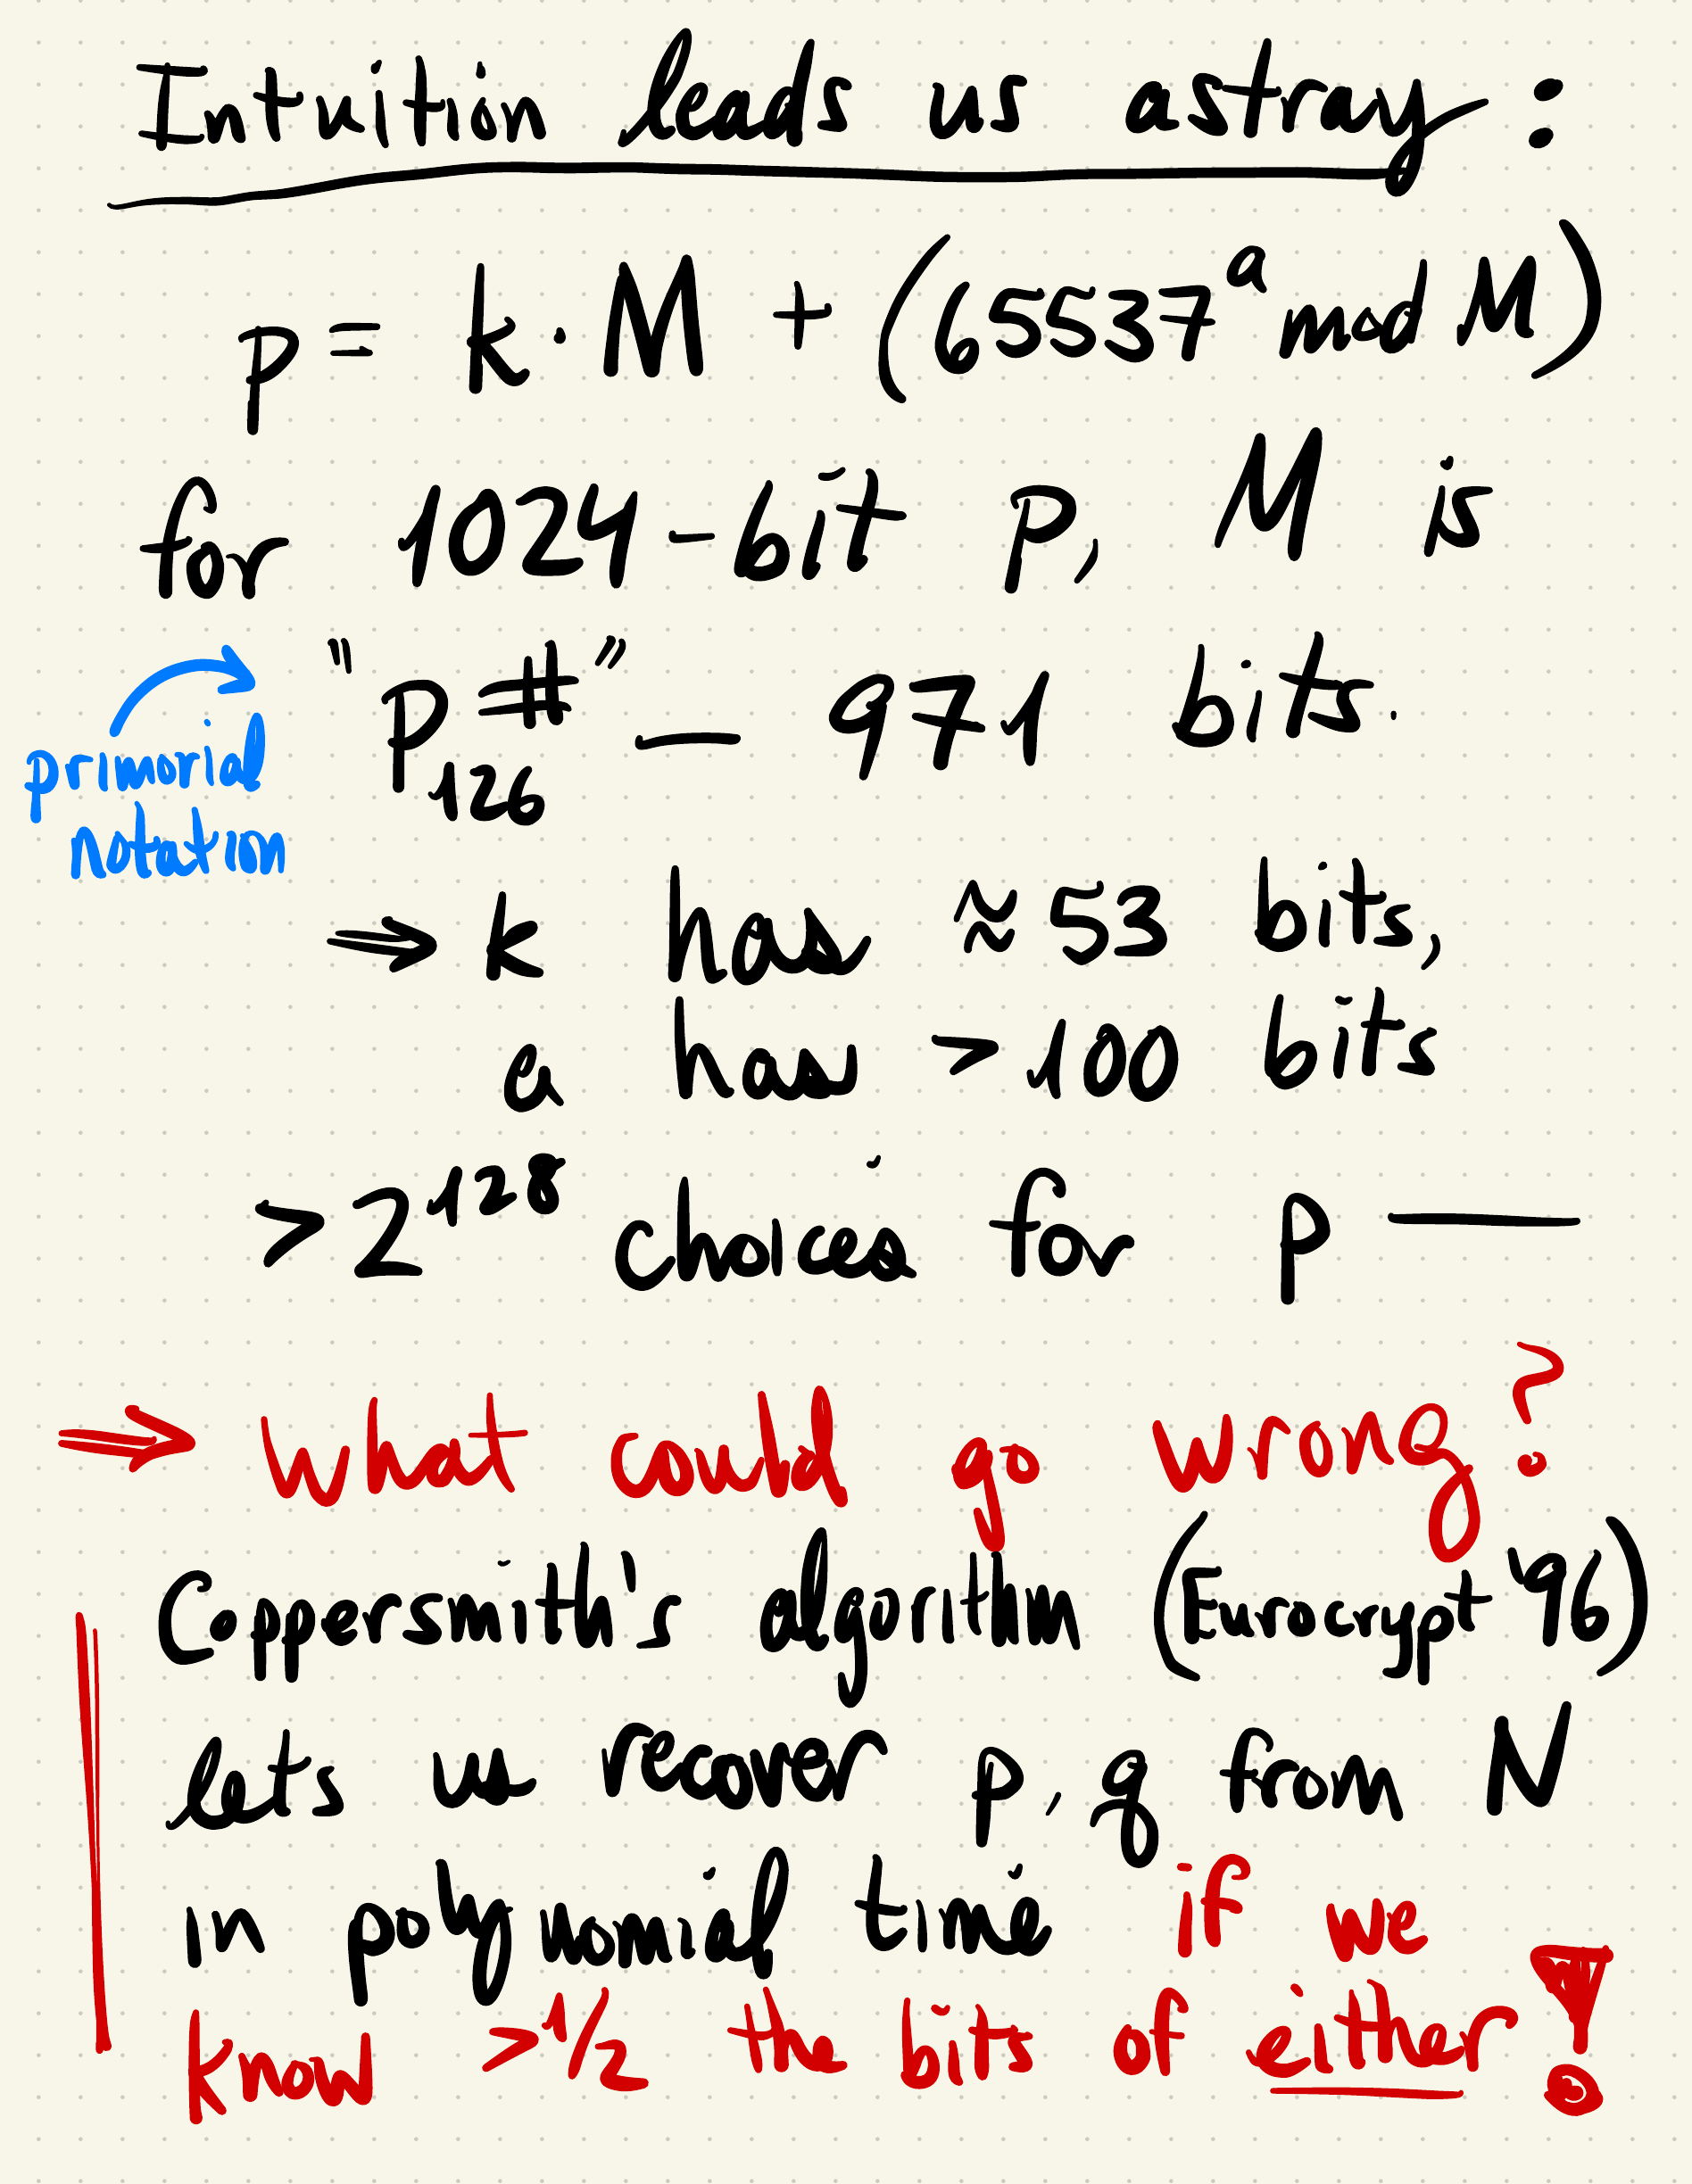 Intuition leads us astray:
p = k · M + (65537^a mod M)
for 1024-bit p, M is
"P_126#" — 971 bits.
primorial
notation
⇒ k has ≈ 53 bits,
a has > 100 bits
> 2^128 choices for p —
⇒ What could go wrong?
Coppersmith's algorithm (Eurocrypt '96)
lets us recover p, q from N
in polynomial time if we
know > 1/2 the bits of either!